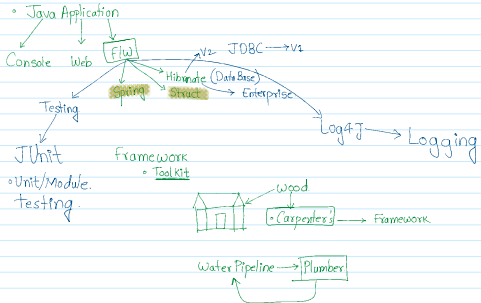 • Java Application
Console Web F/W
V2 JDBC V1
Hibernate (DataBase)
Spring Struct Enterprise
Testing
Log4J Logging
JUnit
• Unit/Module.
testing.
Framework
• Toolkit
Wood
• Carpenter's Framework
Water Pipeline Plumber